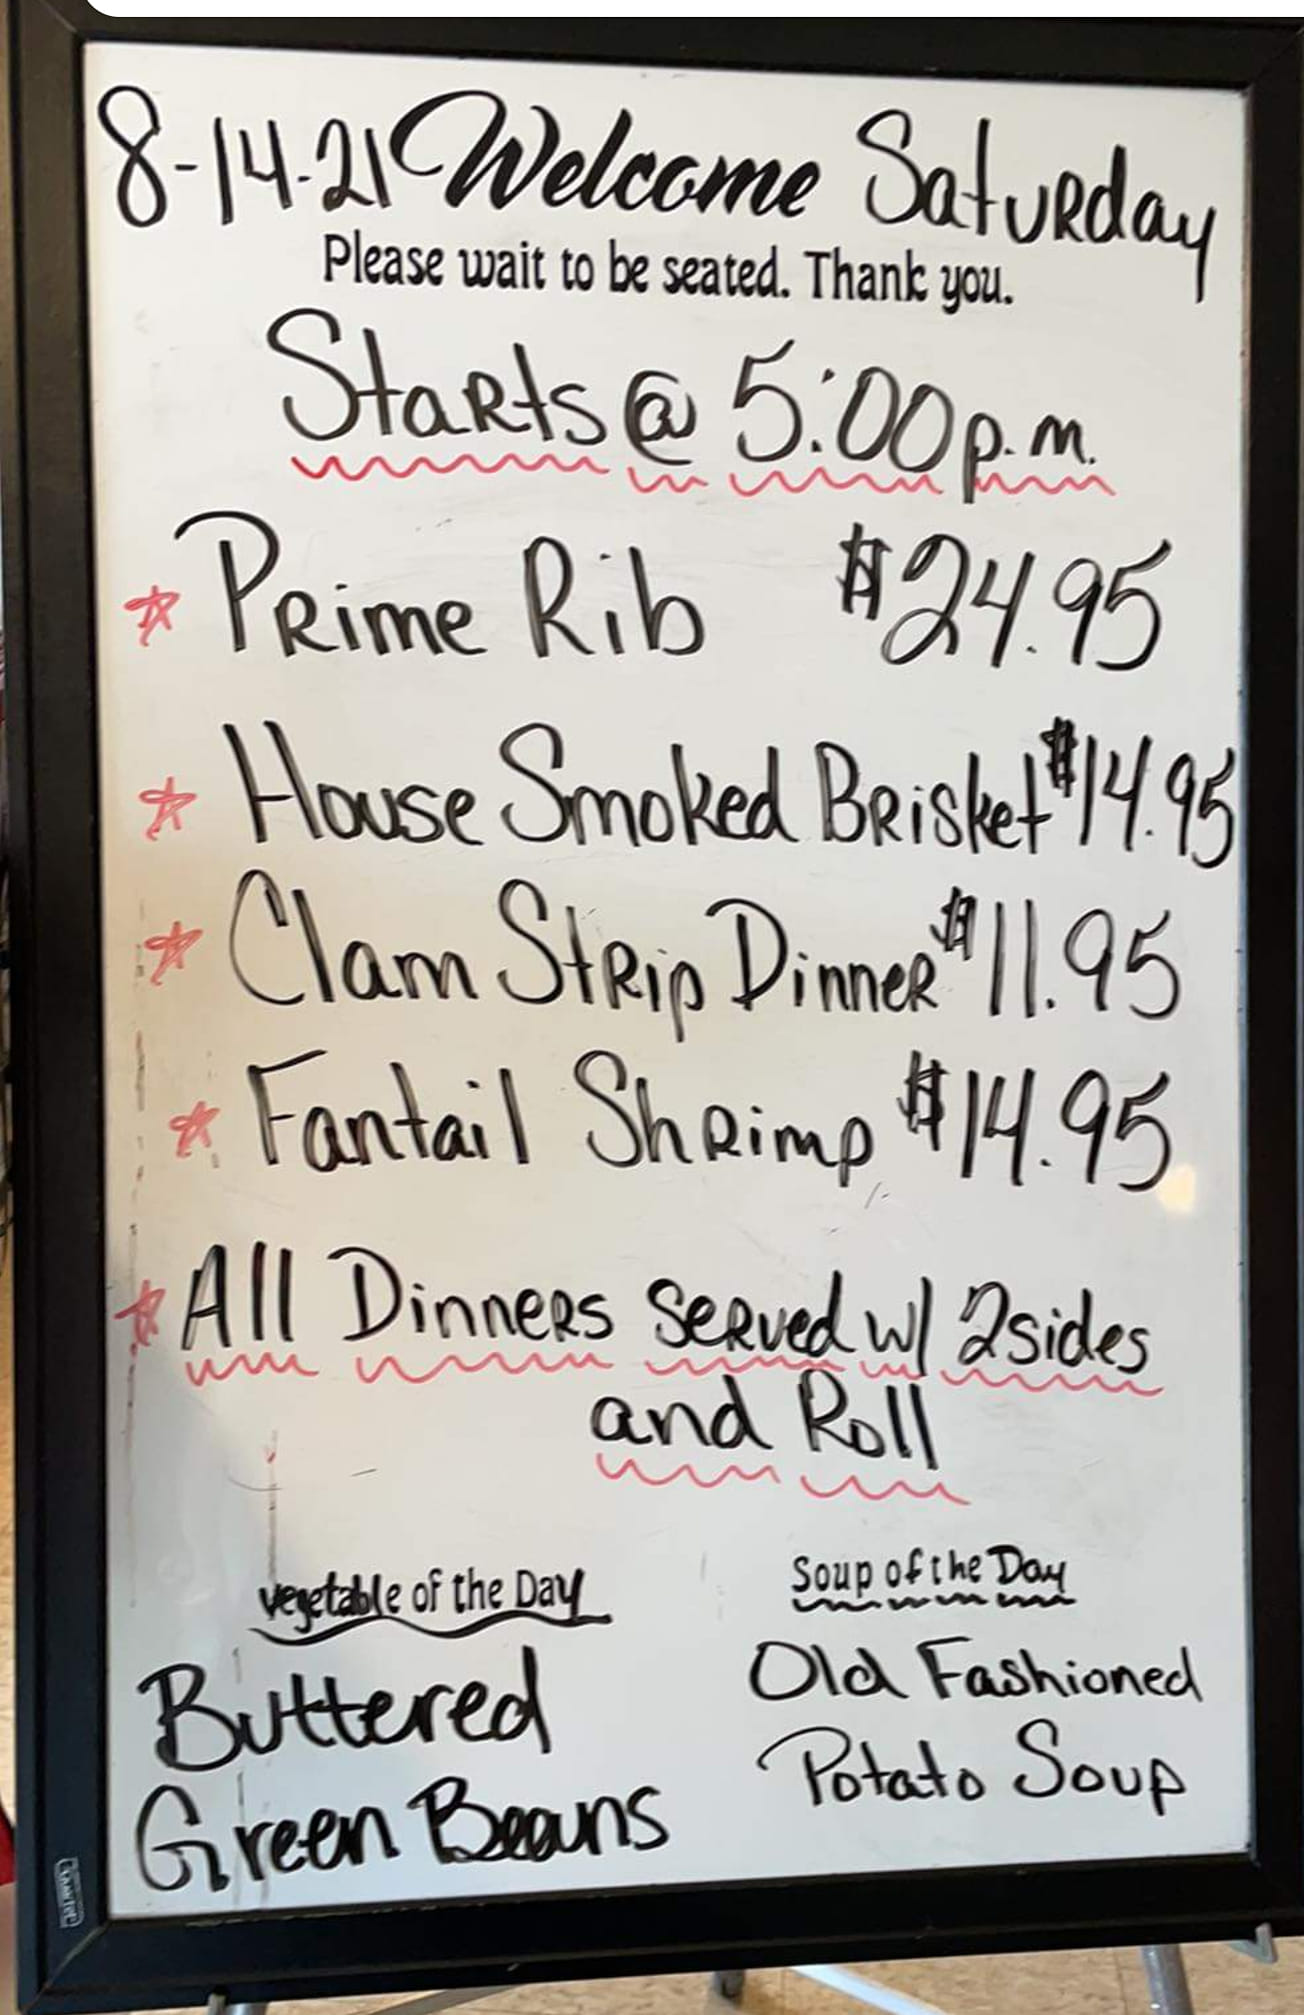 8-14-21 Welcome Saturday
Please wait to be seated. Thank you.
Starts @ 5:00 p.m.
Prime Rib $24.95
House Smoked Brisket $14.95
Clam Strip Dinner $11.95
Fantail Shrimp $14.95
All Dinners served w/ 2 sides
and Roll
vegetable of the Day
Buttered
Green Beans
Soup of the Day
Old Fashioned
Potato Soup
Quartet